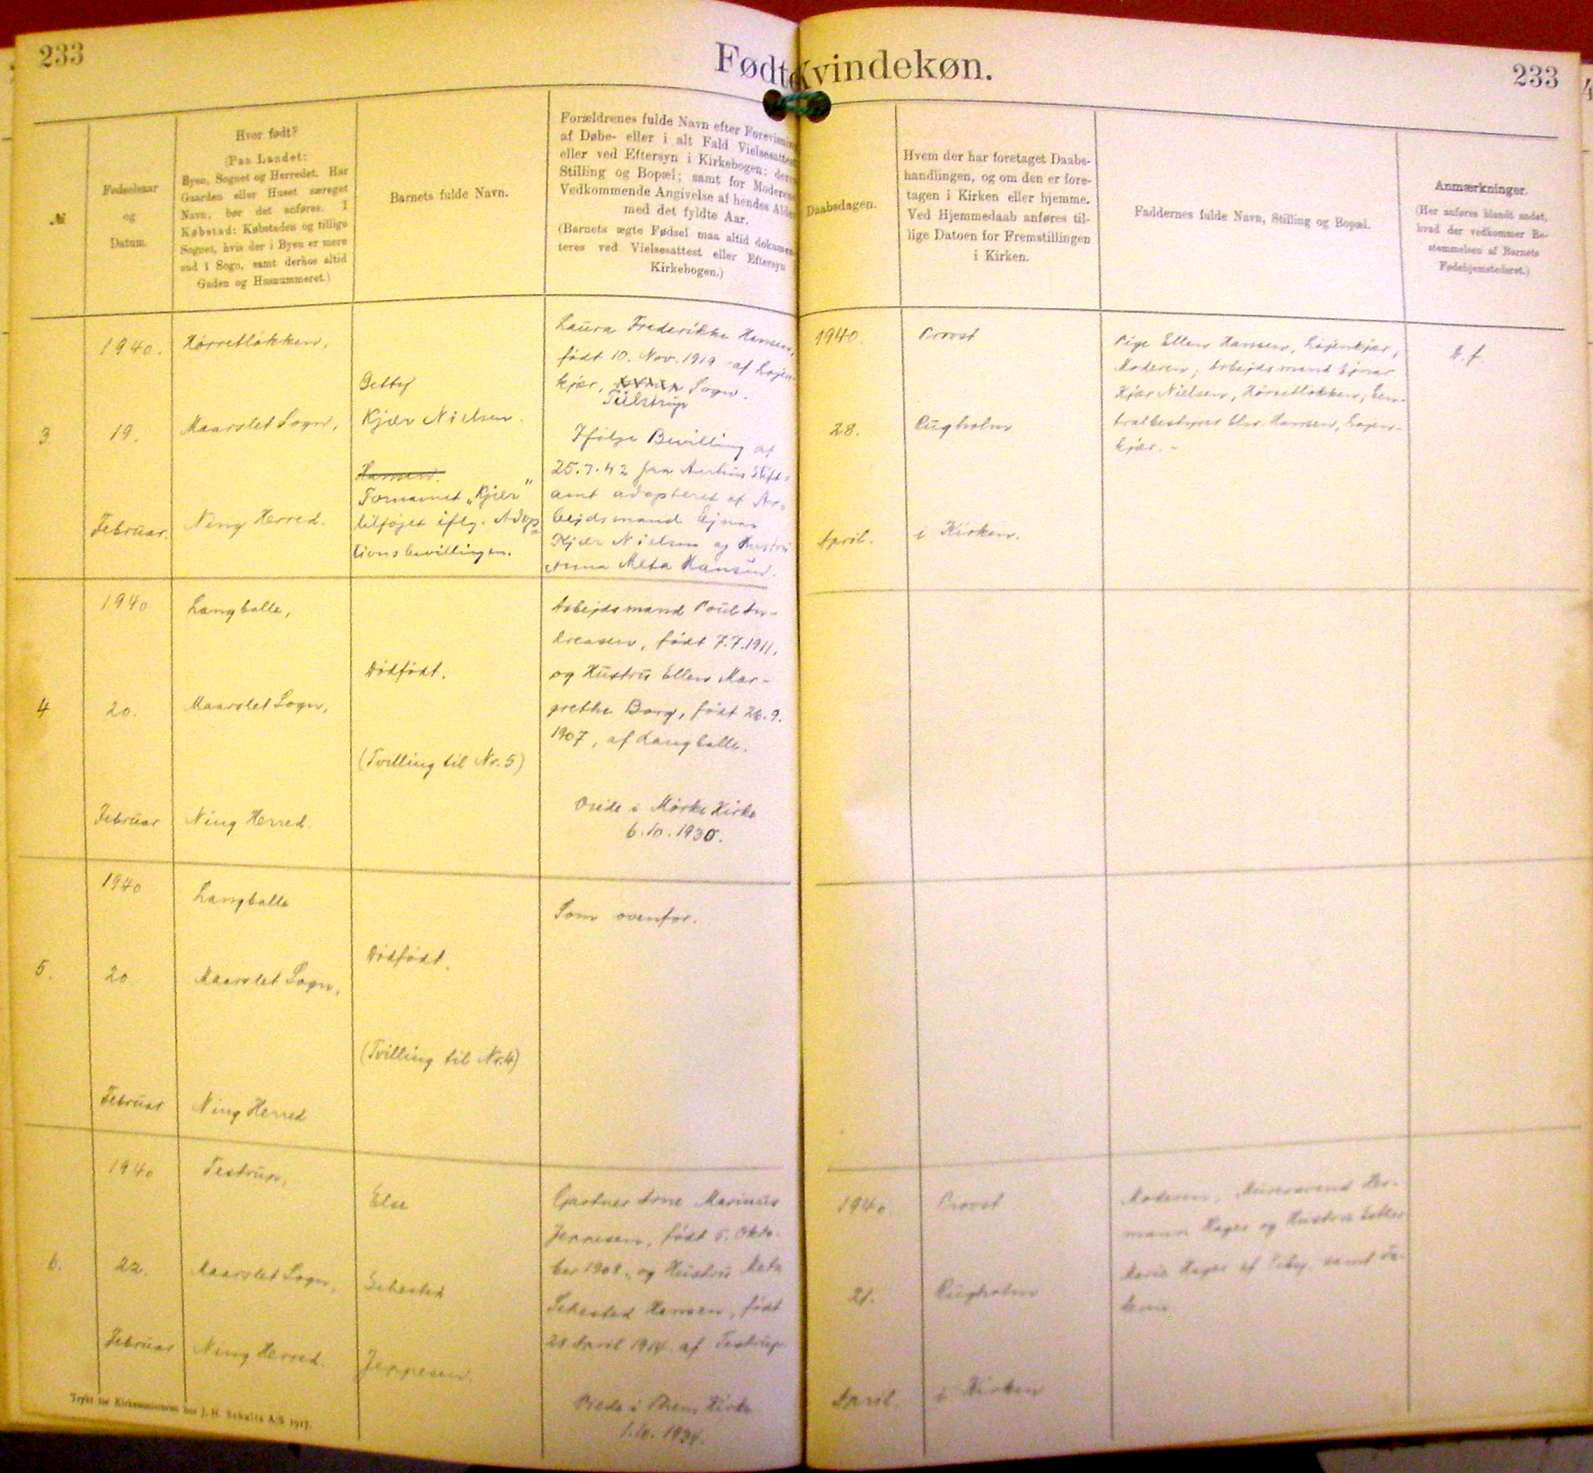 233
Fødte
Kvindekøn.
233
№
Fødselsaar
og
Datum.
Hvor født?
(Paa Landet:
Byen, Sognet og Herredet. Har
Gaarden eller Huset særeget
Navn, bør det anføres. I
Købstad: Købstaden og tillige
Sognet, hvis der i Byen er mere
end 1 Sogn, samt derhos altid
Gaden og Husnummeret.)
Barnets fulde Navn.
Forældrenes fulde Navn efter Forevisning
af Døbe- eller i alt Fald Vielsesattest
eller ved Eftersyn i Kirkebogen; deres
Stilling og Bopæl; samt for Moderens
Vedkommende Angivelse af hendes Alder
med det fyldte Aar.
(Barnets ægte Fødsel maa altid dokumen-
teres ved Vielsesattest eller Eftersyn
Kirkebogen.)
Daabsdagen.
Hvem der har foretaget Daabs-
handlingen, og om den er fore-
tagen i Kirken eller hjemme.
Ved Hjemmedaab anføres til-
lige Datoen for Fremstillingen
i Kirken.
Faddernes fulde Navn, Stilling og Bopæl.
Anmærkninger.
(Her anføres blandt andet,
hvad der vedkommer Be-
stemmelsen af Barnets
Fødehjemstedsret.)
3.
1940.
19.
Februar.
Hørretløkken,
Maarslet Sogn,
Ning Herred.
Betty
Kjær Nielsen.
Hansen.
Fornavnet „Kjær“
tilføjet iflg. Adop
tionsbevillingen.
Laura Frederikke Hansen,
født 10. Nov. 1919 af Løjen-
kjær, Sogn.
Tulstrup
Ifølge Bevilling af
25.7.42 fra Aarhus Stift-
amt adopteret af Ar-
bejdsmand Ejnar
Kjær Nielsen og Hustru
Anna Meta Hansen.
1940
28.
April.
Provst
Rugholm
i Kirken.
Pige Ellen Hansen, Løjenkjær,
Moderen; Arbejdsmand Ejnar
Kjær Nielsen, Hørretløkken, Cen-
tralbestyrer Hansen, Løjen-
kjær. -
A. f.
4
1940
20.
Februar
Langballe,
Maarslet Sogn,
Ning Herred.
Dødfødt.
(Tvilling til Nr. 5)
Arbejdsmand Poul An-
dreasen, født 7.7.1911,
og Hustru Ellen Mar-
grethe Borg, født 26.9.
1907, af Langballe.
Viede i Mørke Kirke
6.10.1930.
5.
1940
20
Februar
Langballe
Maarslet Sogn,
Ning Herred
Dødfødt.
(Tvilling til Nr. 4)
Som ovenfor.
6.
1940
22.
Februar
Testrup,
Maarslet Sogn,
Ning Herred.
Else
Sehested
Jeppesen.
Gartner Arne Marinus
Jeppesen, født 5. Okto-
ber 1908, og Hustru Meta
Sehested Hansen, født
28 April 1914 af Testrup
Viede i Kirke
1940
21.
April
Provst
Rugholm
i Kirken
Moderen, Murersvend Her-
mann Hager og Hustru
Marie Hager af Viby, samt Fa-
deren
Trykt for Kirkeministeriet hos J. H. Schultz A/S 1917.